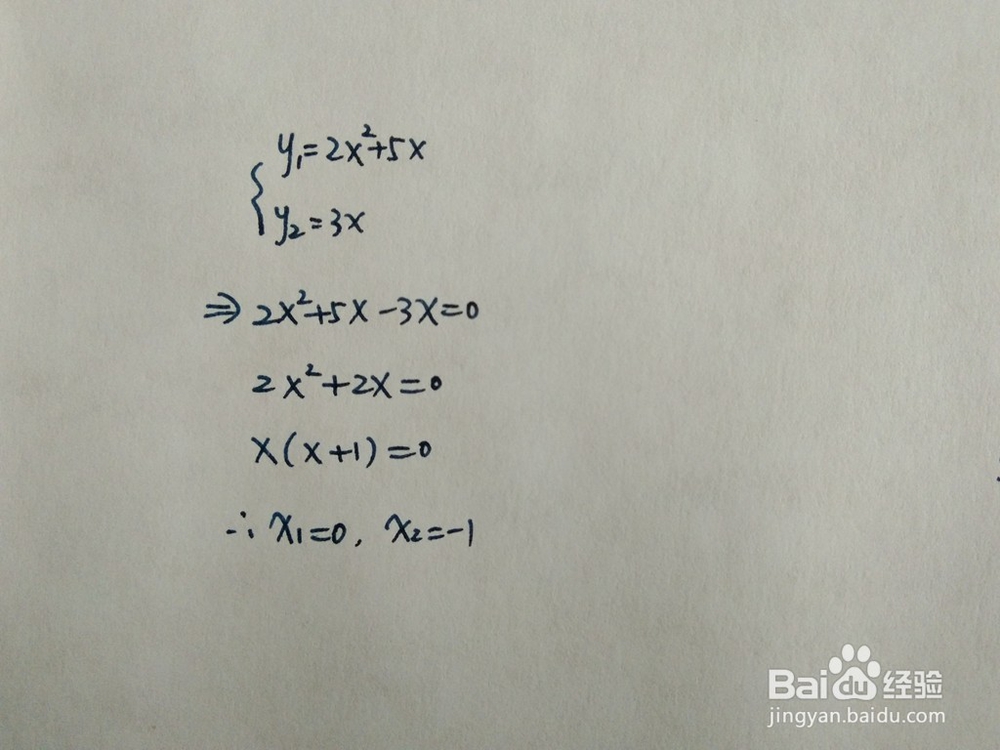 y₁=2x²+5x
y₂=3x
⇒ 2x²+5x-3x=0
2x²+2x=0
x(x+1)=0
∴ x₁=0, x₂=-1
Baidu经验
jingyan.baidu.com